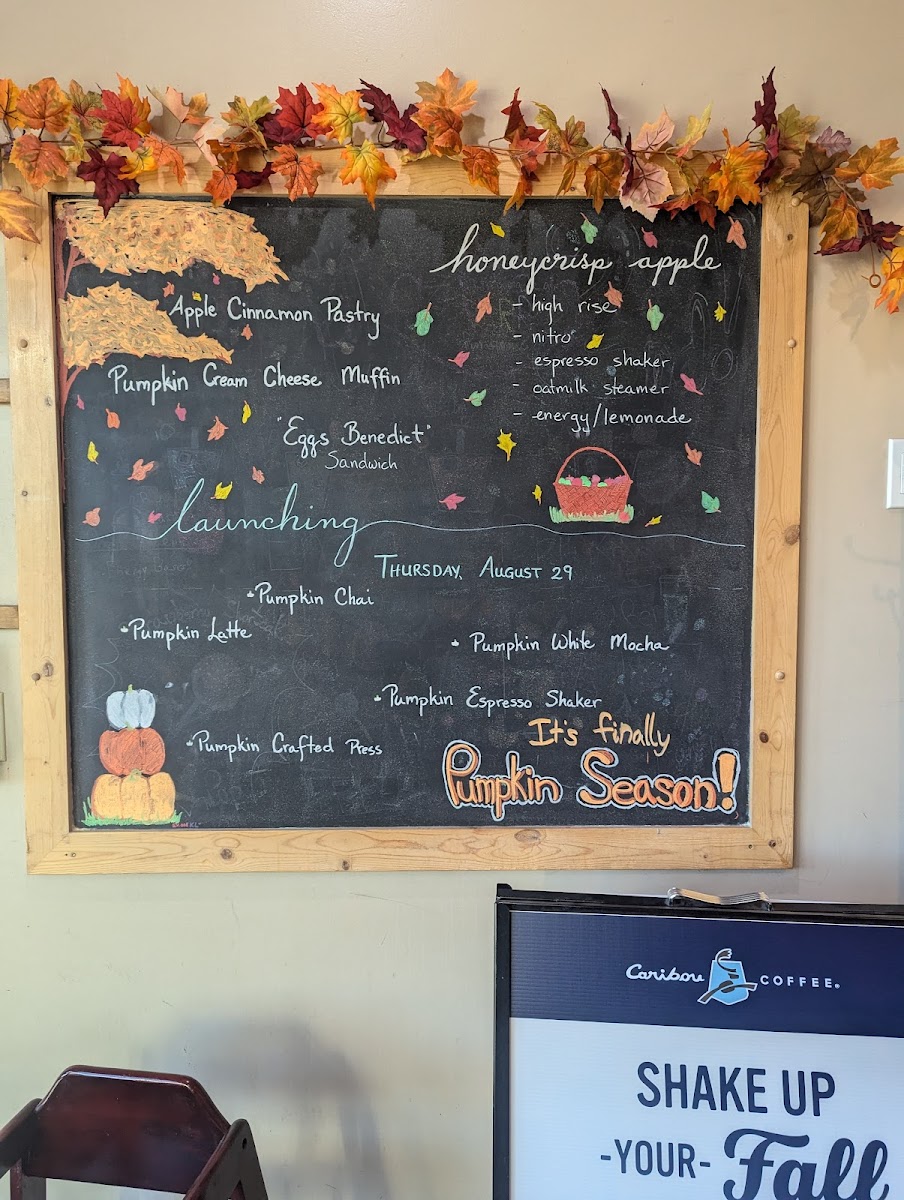 honeycrisp apple
- high rise
- nitro
- espresso shaker
- oatmilk steamer
- energy/lemonade
Apple Cinnamon Pastry
Pumpkin Cream Cheese Muffin
"Eggs Benedict"
Sandwich
launching
THURSDAY, AUGUST 29
Pumpkin Chai
Pumpkin Latte
Pumpkin White Mocha
Pumpkin Espresso Shaker
Pumpkin Crafted Press
It's finally
Pumpkin Season!
Caribou COFFEE®
SHAKE UP
-YOUR- Fall